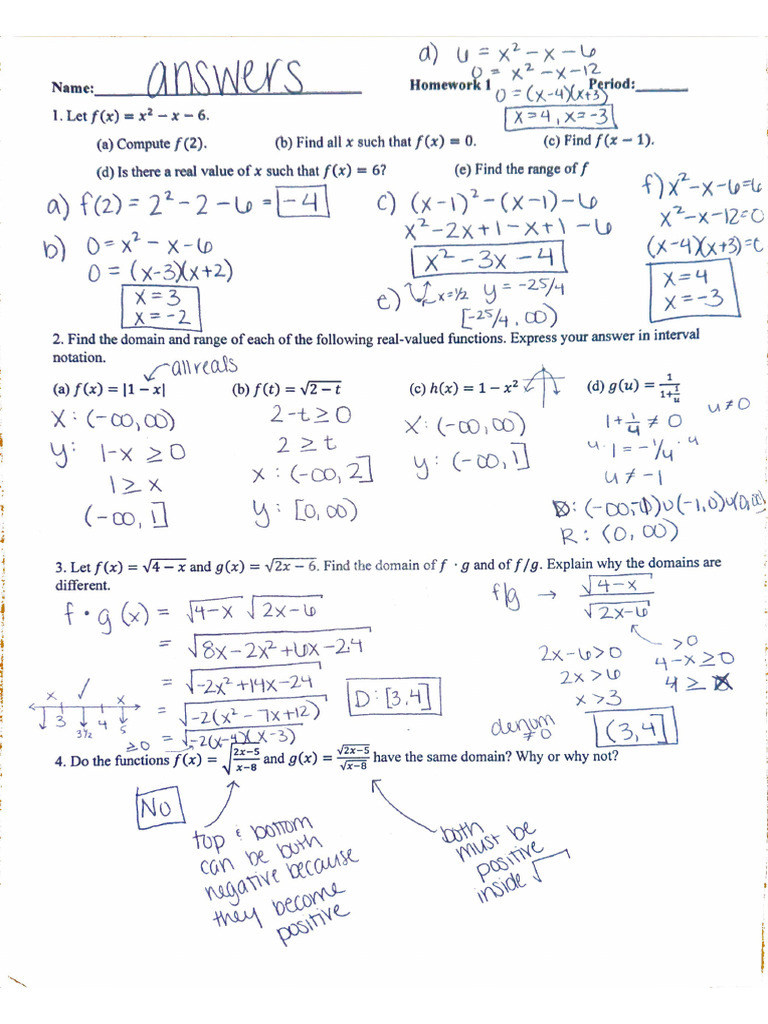 Name: answers
Homework 1 Period:
d) 6 = x² - x - 6
0 = x² - x - 12
0 = (x-4)(x+3)
x=4, x=-3
1. Let f(x) = x² − x − 6.
(a) Compute f(2). (b) Find all x such that f(x) = 0. (c) Find f(x − 1).
(d) Is there a real value of x such that f(x) = 6? (e) Find the range of f
a) f(2) = 2² - 2 - 6 = -4
b) 0 = x² - x - 6
0 = (x-3)(x+2)
x = 3
x = -2
c) (x-1)² - (x-1) - 6
x² - 2x + 1 - x + 1 - 6
x² - 3x - 4
e) x=1/2 y = -25/4
[-25/4, ∞)
f) x² - x - 6 = 6
x² - x - 12 = 0
(x-4)(x+3) = 0
x = 4
x = -3
2. Find the domain and range of each of the following real-valued functions. Express your answer in interval
notation.
all reals
(a) f(x) = |1 − x| (b) f(t) = √2 − t (c) h(x) = 1 − x² (d) g(u) = 1/(1+1/u)
x: (-∞, ∞)
y: 1-x ≥ 0
1 ≥ x
(-∞, 1]
2-t ≥ 0
2 ≥ t
x: (-∞, 2]
y: [0, ∞)
x: (-∞, ∞)
y: (-∞, 1]
u ≠ 0
1 + 1/u ≠ 0
u · 1 = -1/u · u
u ≠ -1
D: (-∞,-1)∪(-1,0)∪(0,∞)
R: (0, ∞)
3. Let f(x) = √4 − x and g(x) = √2x − 6. Find the domain of f · g and of f/g. Explain why the domains are
different.
f · g (x) = √4-x √2x-6
= √8x - 2x² + 6x - 24
= √-2x² + 14x - 24
= √-2(x² - 7x + 12)
= √-2(x-4)(x-3)
≥0
D: [3,4]
x ✓ x
3 3½ 4 5
f/g → √4-x / √2x-6
>0
2x-6>0
2x>6
x>3
4-x≥0
4 ≥ x
denom ≠0
(3,4]
4. Do the functions f(x) = √(2x−5)/(x−8) and g(x) = √2x−5/√x−8 have the same domain? Why or why not?
No
top & bottom
can be both
negative because
they become
positive
both
must be
positive
inside √